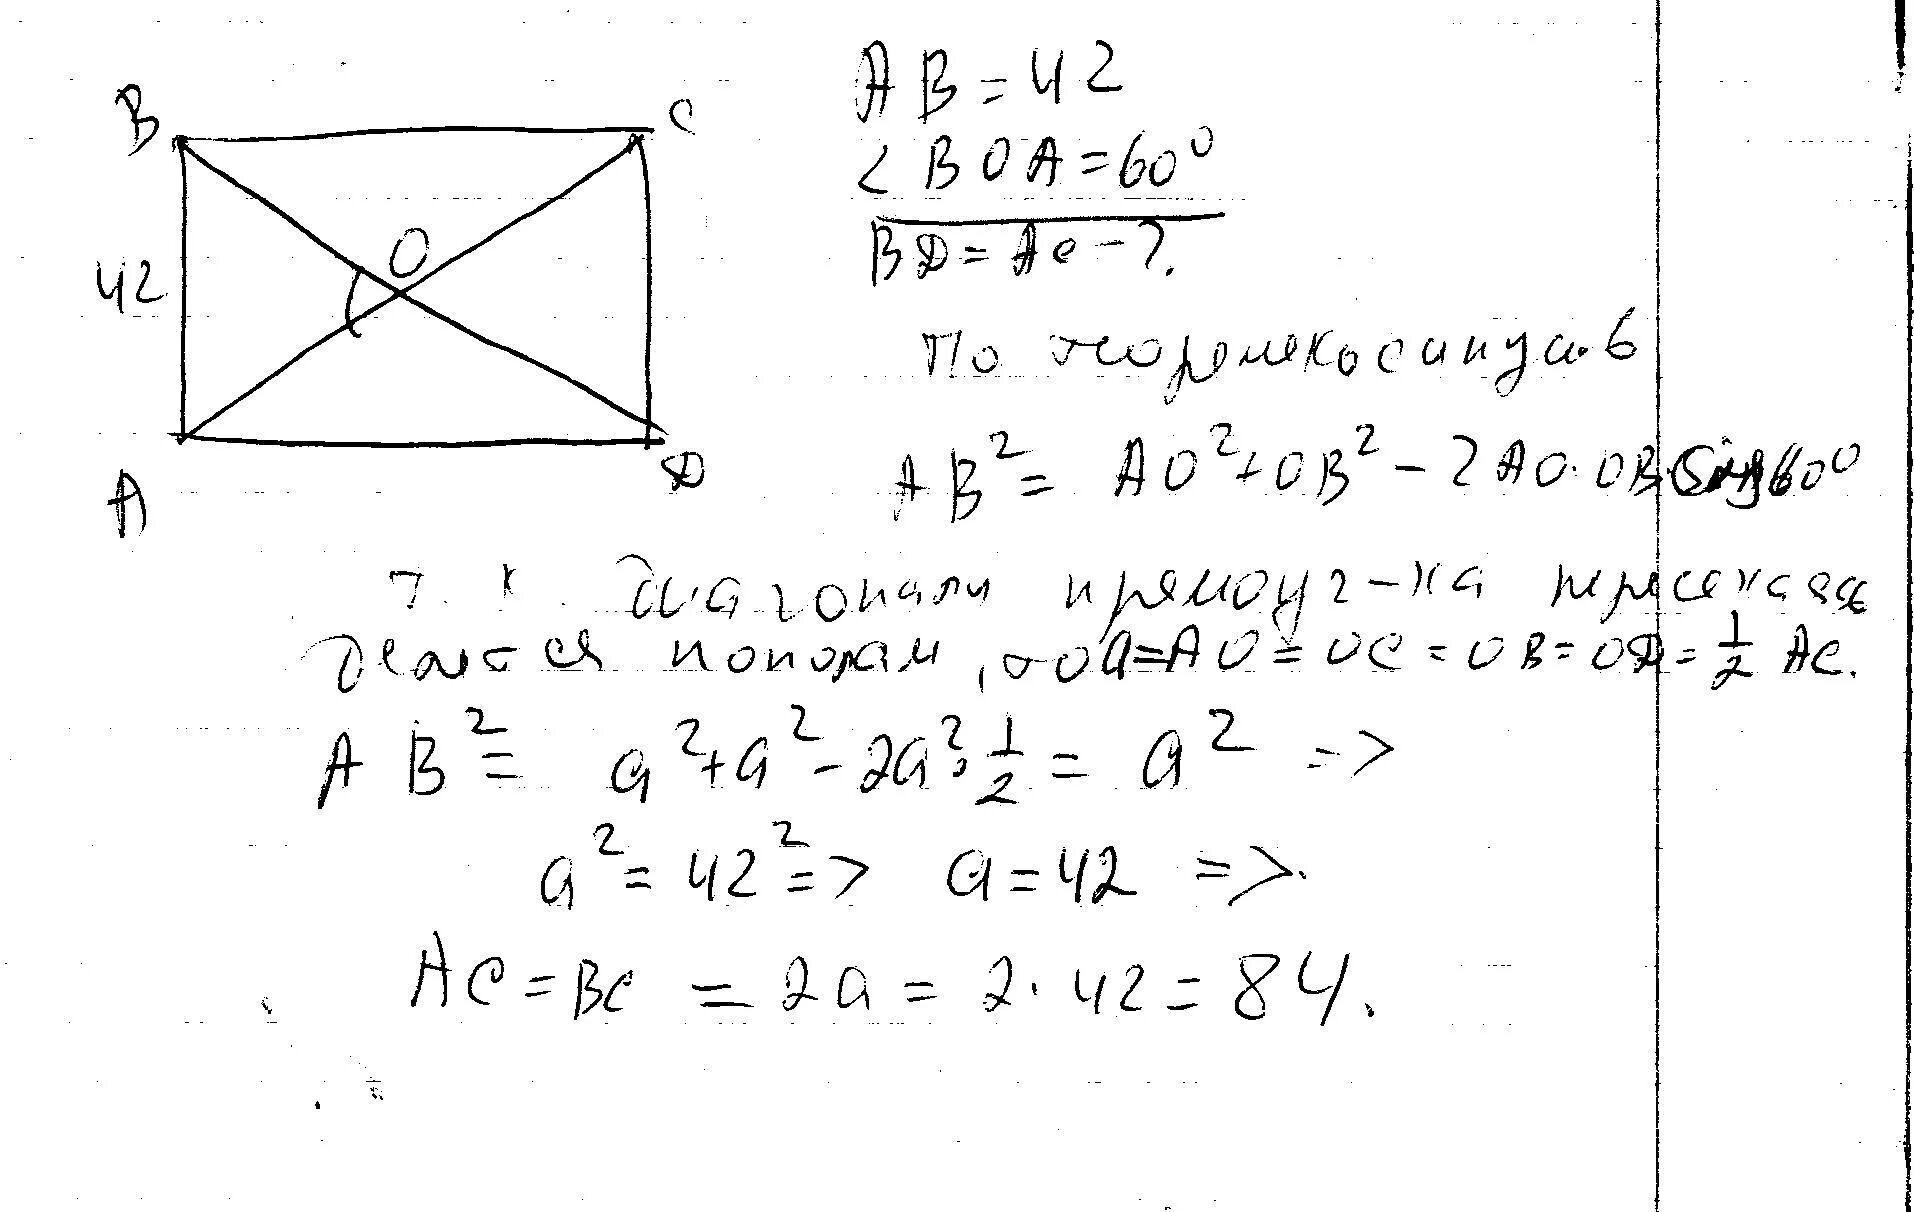 B
C
O
42
A
D
AB = 42
< BOA = 60⁰
BD = AC - ?.
По теореме косинусов
AB² = AO² + OB² - 2AO·OB· 60⁰
т.к диагонали прямоуг-ка пересекаясь
делятся пополам, то a=AO=OC=OB=OD=½ AC.
AB² = a² + a² - 2a²·½ = a² =>
a² = 42² => a = 42 =>.
AC = BC = 2a = 2·42 = 84.